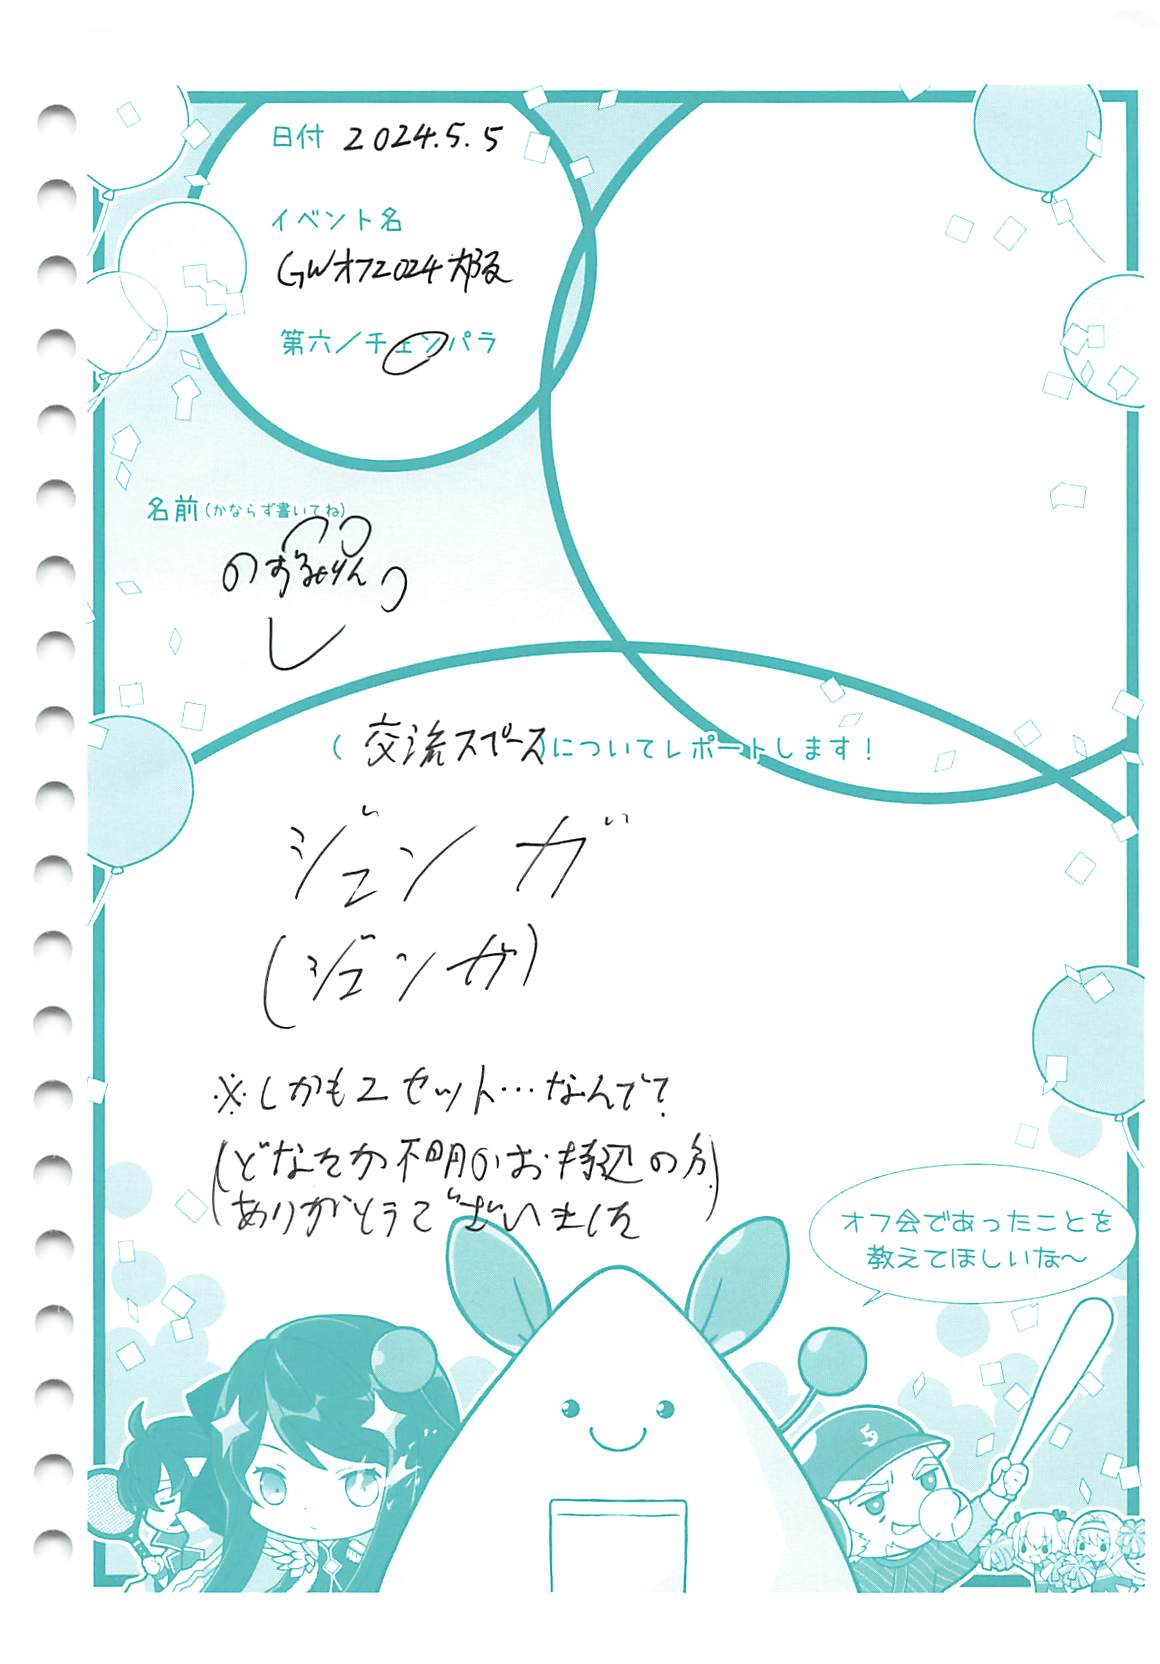 日付 2024.5.5
イベント名
GWオフ2024大阪
第六/チェンパラ
名前(かならず書いてね)
(交流スペース)についてレポートします!
ジェンガ
(ジェンガ)
※しかも2セット…なんで?
(どなたか不明のお持込の方
ありがとうございました)
オフ会であったことを
教えてほしいな〜